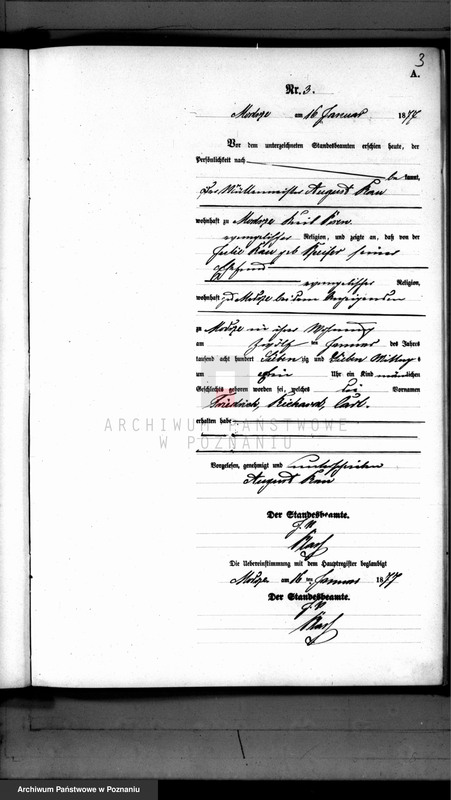 3
A.
Nr. 3.
am 16 Januar 1877
Vor dem unterzeichneten Standesbeamten erschien heute, der
Persönlichkeit nach
be kannt,
der Müllermeister August Rau
wohnhaft zu
evangelischer Religion, und zeigte an, daß von der
Julie Rau geb seiner
Ehefrau
evangelischer Religion,
wohnhaft zu bei dem Anzeigenden
zu in ihrer Wohnung
am zwölf ten Januar des Jahres
tausend acht hundert sieben zig und sieben Mittags
um ein Uhr ein Kind männlichen
Geschlechts geboren worden sei, welches Vornamen
Friedrich, Richard, Carl.
erhalten habe
ARCHIWUM PAŃSTWOWE
W POZNANIU
Vorgelesen, genehmigt und unterschrieben
August Rau
Der Standesbeamte.
Die Uebereinstimmung mit dem Hauptregister beglaubigt
am 16 ten Januar 1877
Der Standesbeamte.
Archiwum Państwowe w Poznaniu